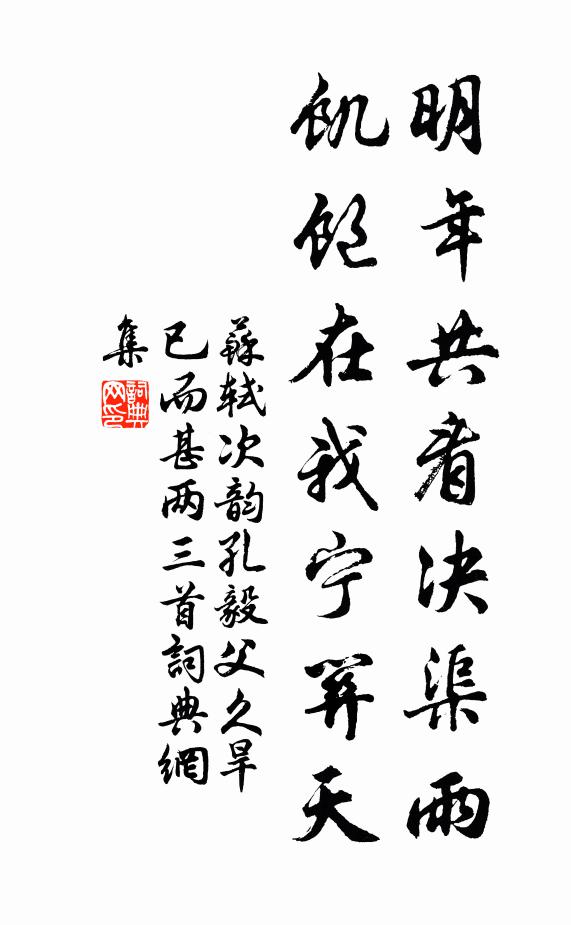 明年共看决渠雨
飢飽在我宁關天
蘇軾次韵孔毅父久旱
已而甚两三首詞典網
集
詞典网印